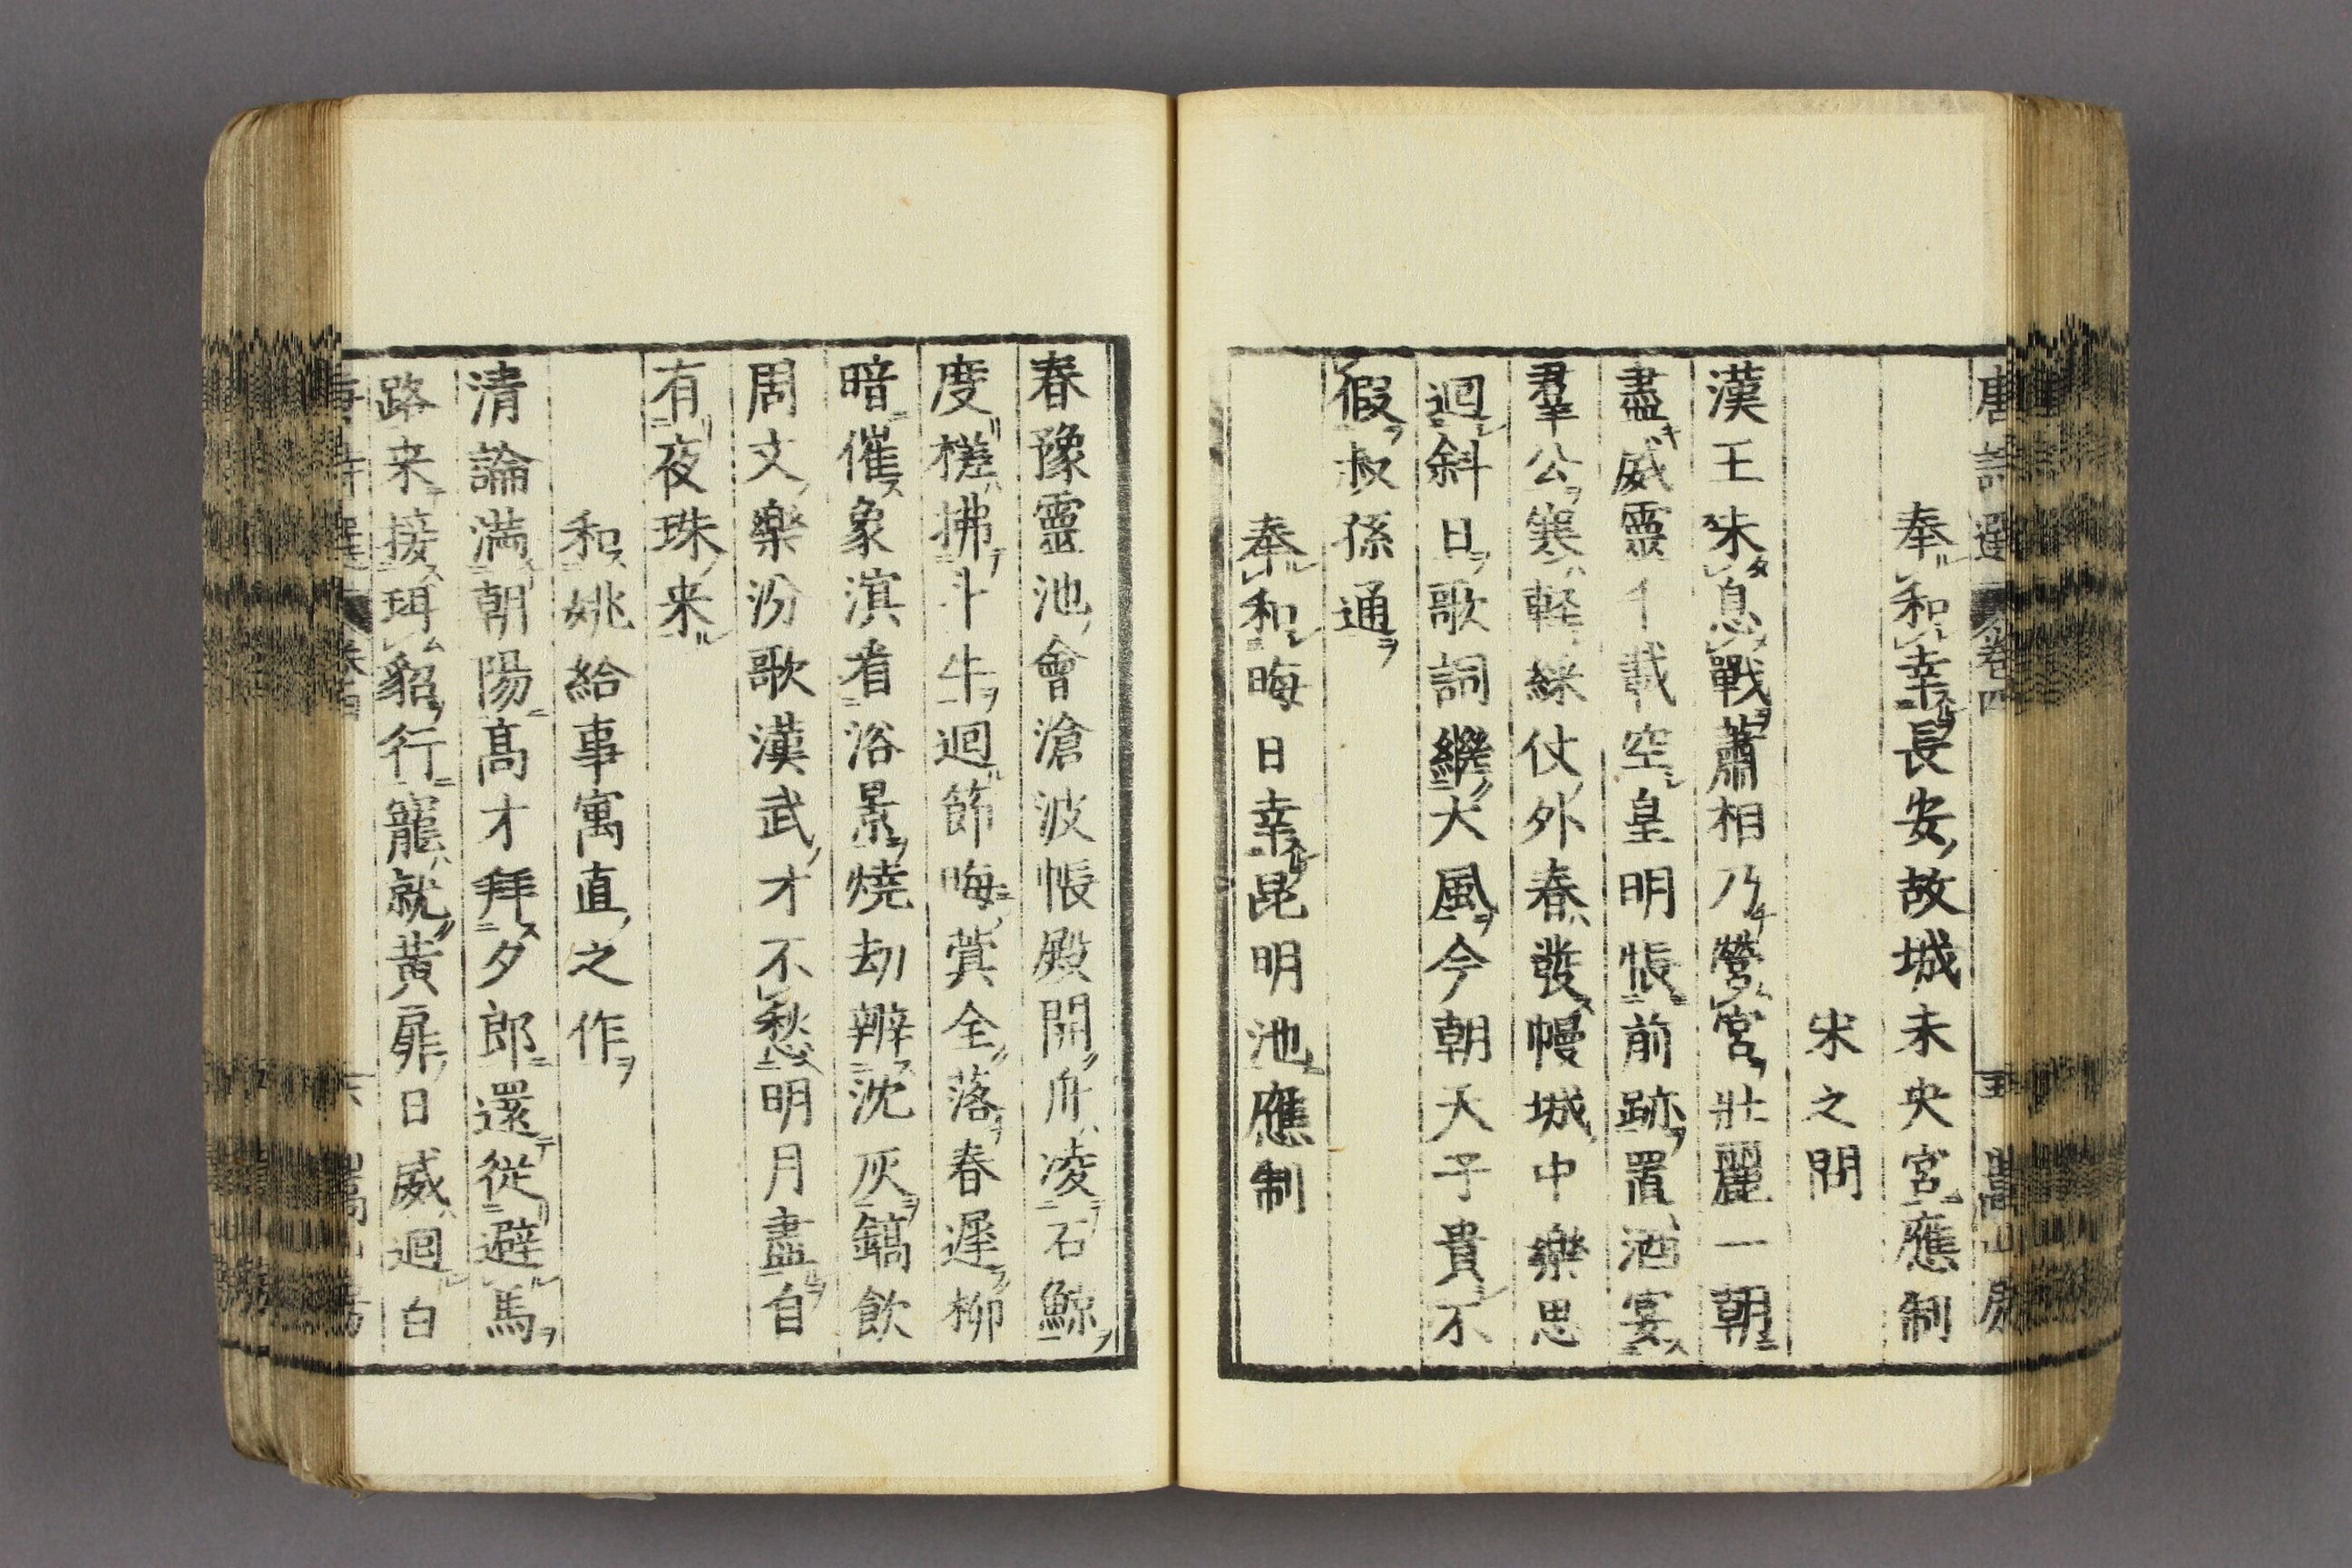 唐詩選 卷四 五 嵩山房
奉和幸長安故城未央宮應制
宋之問
漢王未息戰蕭相乃營宮壯麗一朝
盡威靈千載空皇明悵前跡置酒宴
羣公寒輕綵仗外春發幔城中樂思
迴斜日歌詞繼大風今朝天子貴不
假叔孫通
奉和晦日幸昆明池應制
春豫靈池會滄波帳殿開舟凌石鯨
度槎拂斗牛迴節晦蓂全落春遲柳
暗催象溟看浴景燒劫辨沈灰鎬飲
周文樂汾歌漢武才不愁明月盡自
有夜珠来
和姚給事寓直之作
清論滿朝陽高才拜夕郎還從避馬
路来接珥貂行寵就黃扉日威迴白